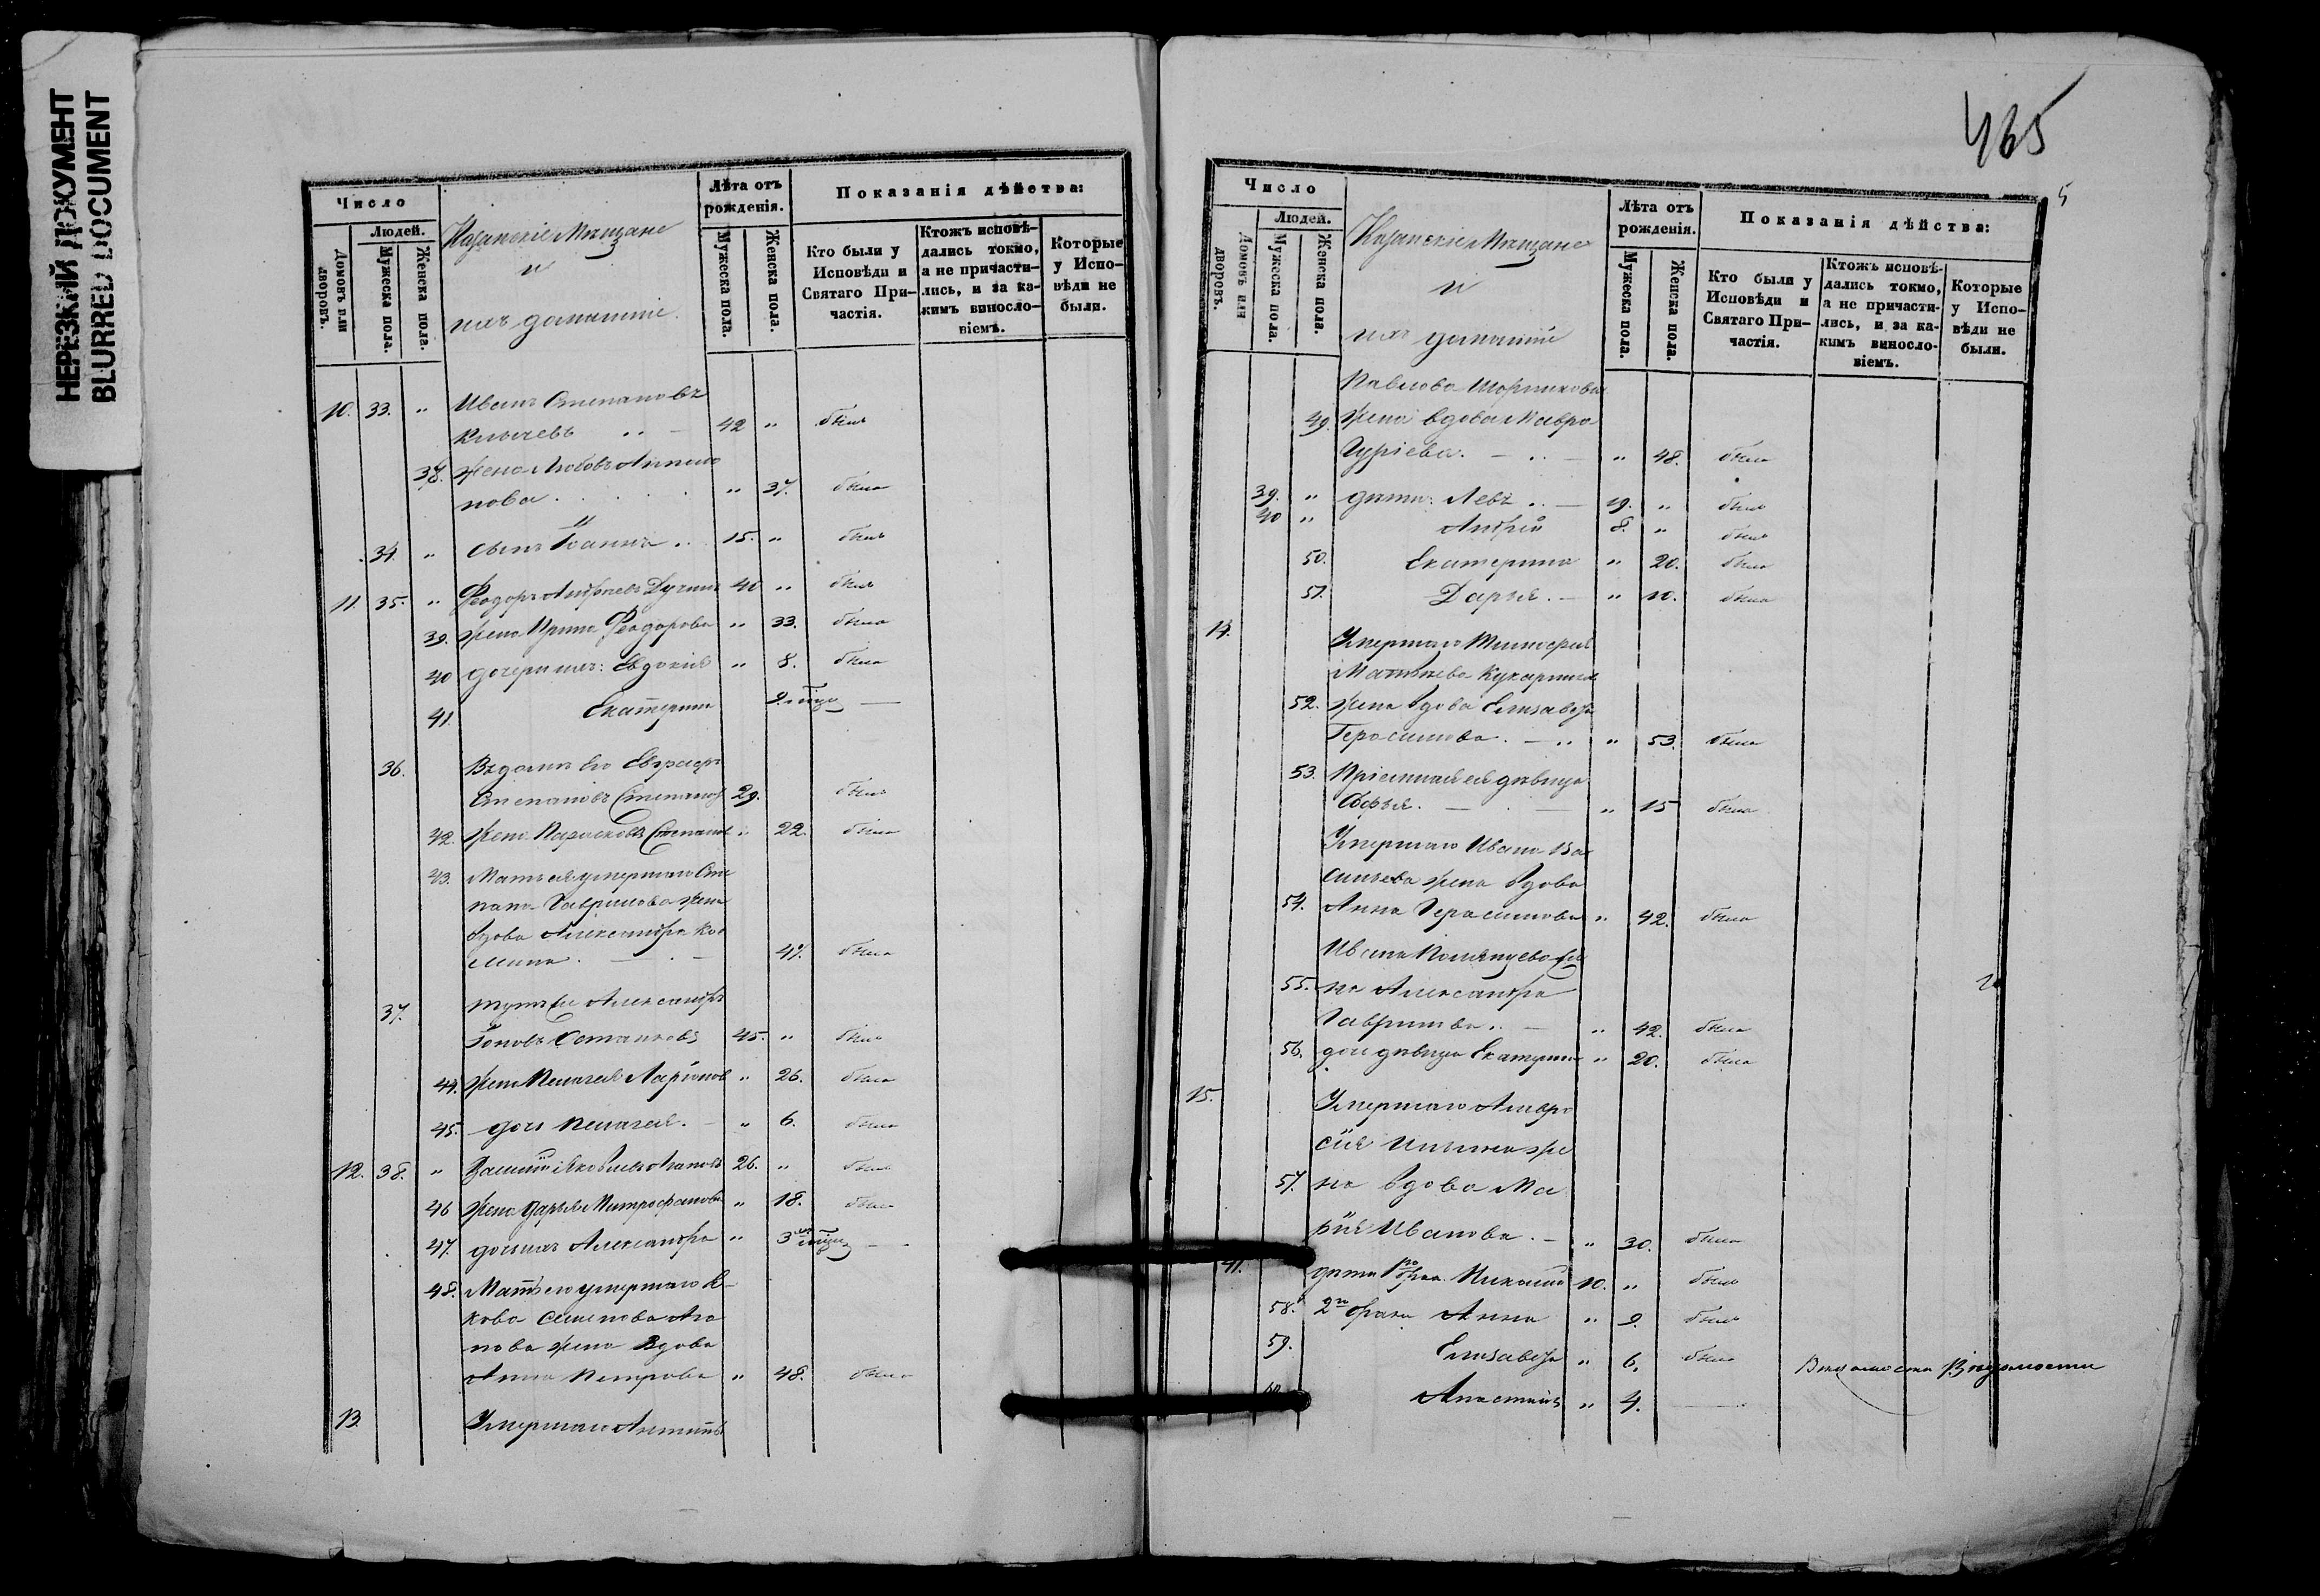 НЕРЕЗКИЙ ДОКУМЕНТ
BLURRED DOCUMENT
Число
Людей.
Домовъ или дворовъ.
Мужеска пола.
Женска пола.
Казанскіе Мѣщане
и
ихъ домашніе.
Лѣта отъ рожденія.
Мужеска пола.
Женска пола.
Показанія дѣйства:
Кто были у Исповѣди и Святаго Причастія.
Ктожъ исповѣдались токмо, а не причастились, и за какимъ винословіемъ.
Которые у Исповѣди не были.
10. 33. " Иванъ Степановъ
42 " былъ
38. жена Любовь
нова " 37. была
34. " сынъ Іоаннъ 15. " былъ
11. 35. " Феодоръ Андреевъ 40 " былъ
39. жена Ирина Феодорова " 33. была
40 дочери ихъ: Евдокія " 8. была
41. Екатерина 2. мѣся
36. Въ домѣ его
Степановъ Степанов 29. былъ
42. жена Параскева Степанов " 22. была
43. Мать ея умершаго Сте
пана Гаврилова жена
вдова Александра Коз
мина. 47. была
37. Александръ
45. " былъ
44. жена Пелагея Ларіонов " 26. была
45. дочь Пелагея. " 6. была
12. 38. " Яковлевъ Агаповъ 26. " былъ
46 жена Дарья Митрофанова " 18. была
47. дочь ихъ Александра " 3 мѣся
48. Мать его умершаго Я
кова Семенова Ага
пова жена вдова
Анна Петрова " 48. была
13. Умершаго
465
5
Число
Людей.
Домовъ или дворовъ.
Мужеска пола.
Женска пола.
Казанскіе Мѣщане
и
ихъ домашніе
Лѣта отъ рожденія.
Мужеска пола.
Женска пола.
Показанія дѣйства:
Кто были у Исповѣди и Святаго Причастія.
Ктожъ исповѣдались токмо, а не причастились, и за какимъ винословіемъ.
Которые у Исповѣди не были.
Павлова
49. жена вдова Мавра
Гуріева. " 48. была
39. " дѣти: Левъ 19. " былъ
40 " Андрей 8. " былъ
50. Екатерина " 20. была
51. Дарья. " 10. была
14. Умершаго Тимофея
Матвѣева
52. жена вдова Елизавета
Герасимова. " 53. была
53. Пріемная ея дѣвица
Софья. " 15 была
Умершаго Ивана Ва
сильева жена вдова
54. Анна Герасимова " 42. была
Ивана же
55. на Александра
Гаврилова. " 42. была
56. дочь дѣвица Екатерина " 20. была
15. Умершаго Амвро
сія Ильина же
57. на вдова Ма
рія Иванова. " 30. была
41. дѣти 1го брака Николай 10. " былъ
58. 2го брака Анна " 9. была
59. Елизавета " 6. была
60. Анастасія " 4.
Вѣдомости